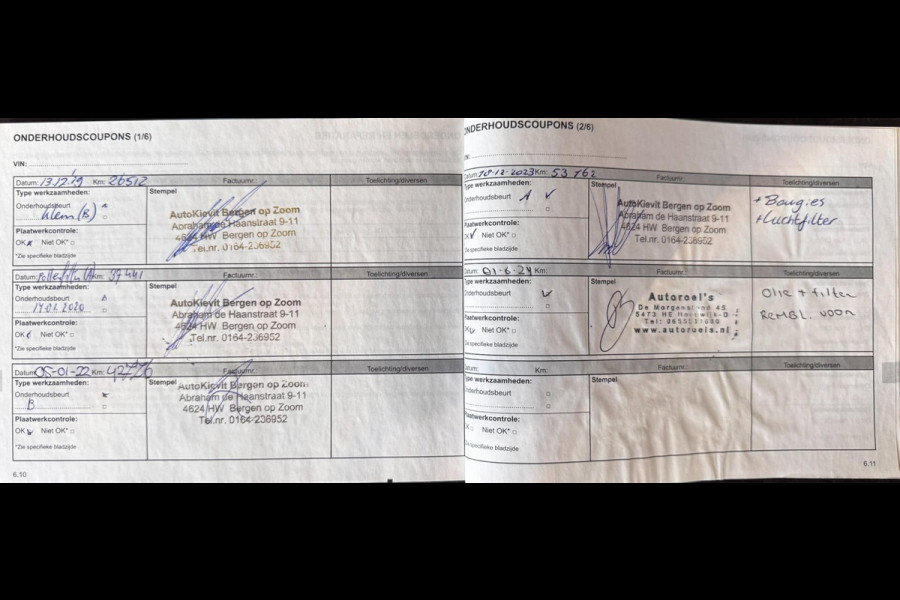 ONDERHOUDSCOUPONS (1/6)
VIN:
Datum: 13.12.19 Km: 26512 Factuurnr.: Toelichting/diversen
Type werkzaamheden: Stempel
Onderhoudsbeurt
Klein (B)
AutoKievit Bergen op Zoom
Abraham de Haanstraat 9-11
4624 HW Bergen op Zoom
Tel.nr. 0164-236952
Plaatwerkcontrole:
OK Niet OK*
*Zie specifieke bladzijde
Datum: Km: 37441 Factuurnr.: Toelichting/diversen
Type werkzaamheden: Stempel
Onderhoudsbeurt
2020
AutoKievit Bergen op Zoom
Abraham de Haanstraat 9-11
4624 HW Bergen op Zoom
Tel.nr. 0164-236952
Plaatwerkcontrole:
OK Niet OK*
*Zie specifieke bladzijde
Datum: 05-01-22 Km: Factuurnr.: Toelichting/diversen
Type werkzaamheden: Stempel
Onderhoudsbeurt
B
AutoKievit Bergen op Zoom
Abraham de Haanstraat 9-11
4624 HW Bergen op Zoom
Tel.nr. 0164-236952
Plaatwerkcontrole:
OK Niet OK*
*Zie specifieke bladzijde
6.10
ONDERHOUDSCOUPONS (2/6)
Datum: 10-12-2023 Km: 53762 Factuurnr.: Toelichting/diversen
Type werkzaamheden: Stempel
Onderhoudsbeurt A
AutoKievit Bergen op Zoom
Abraham de Haanstraat 9-11
4624 HW Bergen op Zoom
Tel.nr. 0164-236952
+ Bougies
+ Luchtfilter
Plaatwerkcontrole:
OK Niet OK*
Zie specifieke bladzijde
Datum: 01-6-24 Km: Factuurnr.: Toelichting/diversen
Type werkzaamheden: Stempel
Onderhoudsbeurt
Autoroel's
De Morgenstond 45
5473 HE
Tel:
www.autoroels.nl
Olie + filter
REMBL. VOOR
Plaatwerkcontrole:
Niet OK*
Zie specifieke bladzijde
Datum: Km: Factuurnr.: Toelichting/diversen
Type werkzaamheden: Stempel
Onderhoudsbeurt
Plaatwerkcontrole:
Niet OK*
Zie specifieke bladzijde
6.11